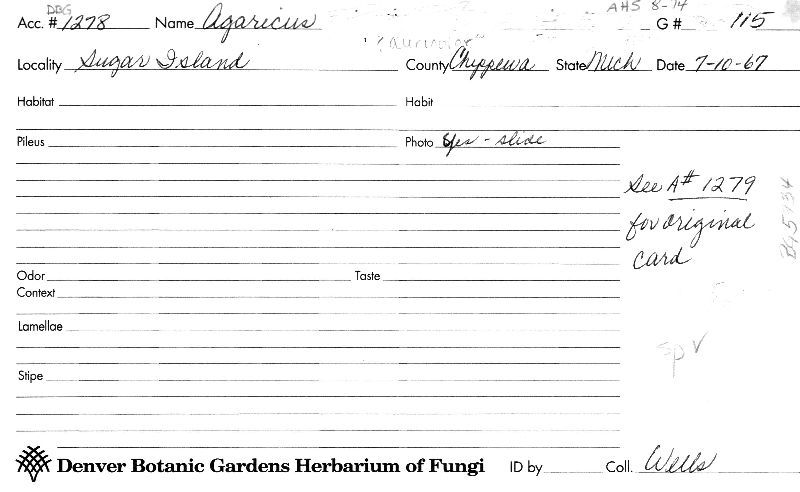 DBG AHS 8-74
Acc. # 1278 Name Agaricus G # 115
Locality Sugar Island County Chippewa State Mich Date 7-10-67
Habitat Habit
Pileus Photo Yes - slide
See A# 1279
for original
card
Odor Taste
Context
Lamellae
sp ✓
Stipe
Denver Botanic Gardens Herbarium of Fungi ID by Coll. Wells